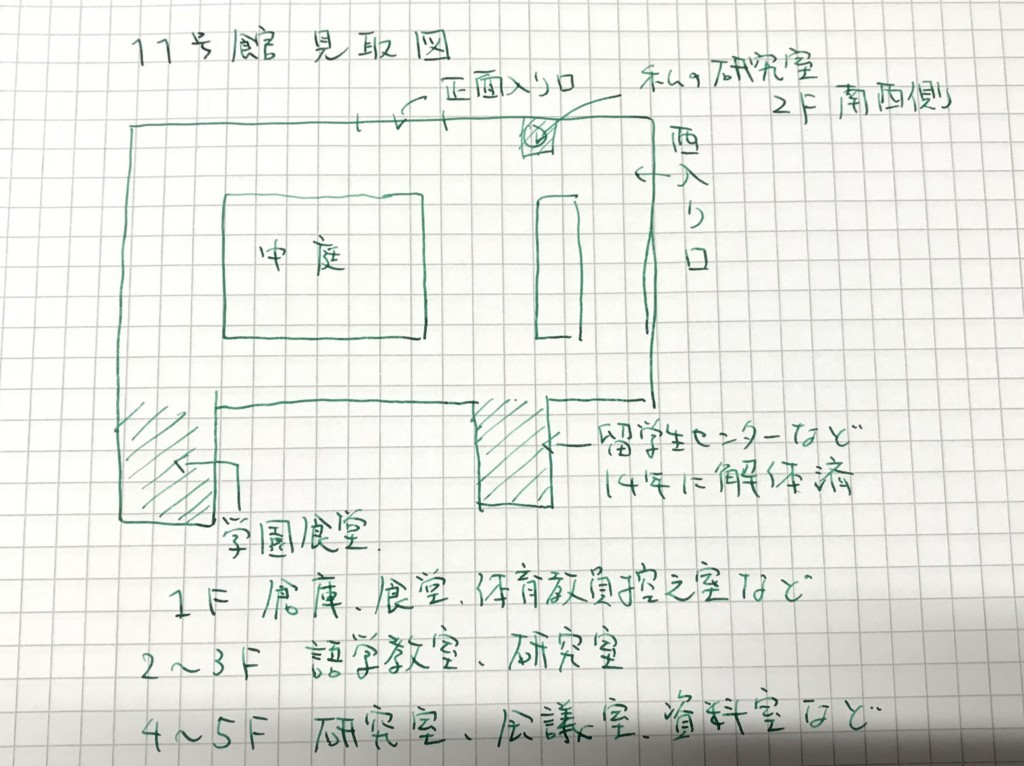 11号館 見取図
正面入り口
私の研究室
2F 南西側
西入り口
中庭
留学生センターなど
14年に解体済
学園食堂
1F 倉庫、食堂、体育教員控え室など
2〜3F 語学教室、研究室
4〜5F 研究室、会議室、資料室など